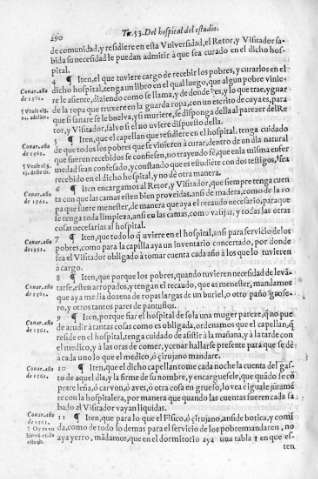 290
Tit.53.Del hospital del estudio.
de comunidad, y residiere en esta Vniuersidad, el Retor, y Visitador sa-
bida su necesidad le puedan admitir à que sea curado en el dicho hos-
pital.
4 ¶ Iten, el que tuuiere cargo de recebir los pobres, y curarlos en el
dicho hospital, tenga vn libro en el qual luego, que algun pobre vinie-
re le asiente, diziendo como se llama, y de donde es, y lo que trae, y guar
de la ropa que truxere en la guarda ropa, con vn escrito de cuya es, para
que si sanare se le buelua, y si muriere, se disponga della al parecer del Re-
tor, y Visitador, saluo si el no uuiere dispuesto della.
5 ¶ Iten, que el capellan que residiere en el hospital, tenga cuidado
de que todos los pobres que se vinieren à curar, dentro de vn dia natural
que fueren recebidos se confiesen, no trayendo fè, que en la misma enfer
medad sean confesado, y constando que es estudiante con dos testigos, sea
recebido en el dicho hospital, y no de otra manera.
6 ¶ Iten encargamos al Retor, y Visitador, que siempre tenga cuen
ta con que las camas estèn bien proueidas, ansi de madera, como de la ro
pa que fuere menester, de manera que aya el recaudo necesario, para que
se tenga toda limpieza, ansi en las camas, como vasijas, y todas las otras
cosas necesarias al hospital.
7 ¶ Iten, que todo lo q̃ uuiere en el hospital, ansi para seruicio de los
pobres, como para la capilla aya vn inuentario concertado, por donde
sea el Visitador obligado à tomar cuenta cada año à los que lo tuuieren
à cargo.
8 ¶ Iten, que porque los pobres, quando tuuieren necesidad de leuã-
tarse, esten arropados, y tengan el recaudo, que es menester, mandamos
que aya media dozena de ropas largas de vn buriel, o otro paño grose-
ro, y otros tantos pares de pantuflos.
9 ¶ Iten, porque fiar el hospital de sola vna muger parece, q̃ no pue
de acudir à tantas cosas como es obligada, ordenamos que el capellan, q̃
reside en el hospital, tenga cuidado de asistir à la mañana, y à la tarde con
el medico, y à las oras de comer, y cenar hallarse presente para que se dè
à cada uno lo que el medico, ò çirujano mandare.
10 ¶ Iten, que el dicho capellan tome cada noche la cuenta del gas-
to de aquel dia, y la firme de su nombre, y encarguesele, que quãdo se cõ
prare leña, ò caruon, ò aues, o otra cosa en grueso, lo vea è iguale junta mẽ
te con la hospitalera, por manera que quando las cuentas fueren cada sa
bado al Visitador vayan liquidas.
11 ¶ Iten, que para lo que el Fisico, ò çirujano, ansi de botica, y comi
da, como de todo lo demas para el seruicio de los pobres mandaren, no
aya yerro, mãdamos, que en el dormitorio aya una tabla en que es-
ten